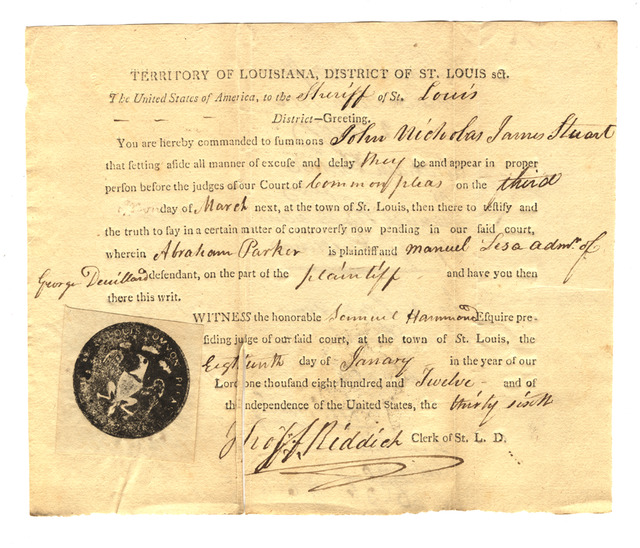 TERRITORY OF LOUISIANA, DISTRICT OF ST. LOUIS sct.
The United States of America, to the Sheriff of St. Louis
District—Greeting.
You are hereby commanded to summons John Nicholas James Stuart
that setting aside all manner of excuse and delay they be and appear in proper
person before the judges of our Court of Common pleas on the third
monday of March next, at the town of St. Louis, then there to testify and
the truth to say in a certain matter of controversy now pending in our said court,
wherein Abraham Parker is plaintiff and manuel Lisa admr. of
George defendant, on the part of the plaintiff and have you then
there this writ.
WITNESS the honorable Samuel Hammond Esquire pre-
siding judge of our said court, at the town of St. Louis, the
Eighteenth day of Janary in the year of our
Lord one thousand eight hundred and Twelve and of
the independence of the United States, the thirty sixth
Thos. F. Riddick Clerk of St. L. D.
ST LOUIS COMMON PLEAS